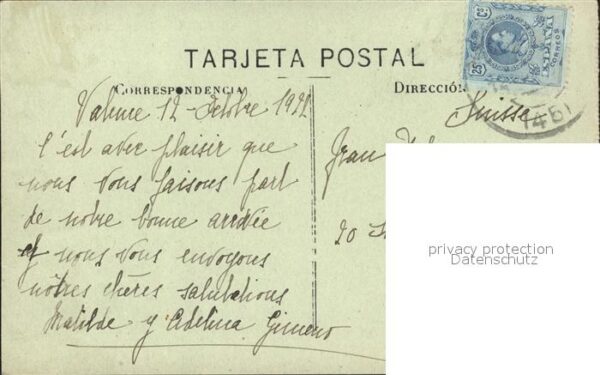 TARJETA POSTAL
CORRESPONDENCIA
DIRECCIÓN
25
CORREOS
25
1461
Valence 12 - Octobre 1922
Suisse
C'est avec plaisir que
nous vous faisons part
de notre bonne arrivée
et nous vous envoyons
nôtres chères salutations
Matilde y Adelina Gimeno
Jean
20
privacy protection
Datenschutz